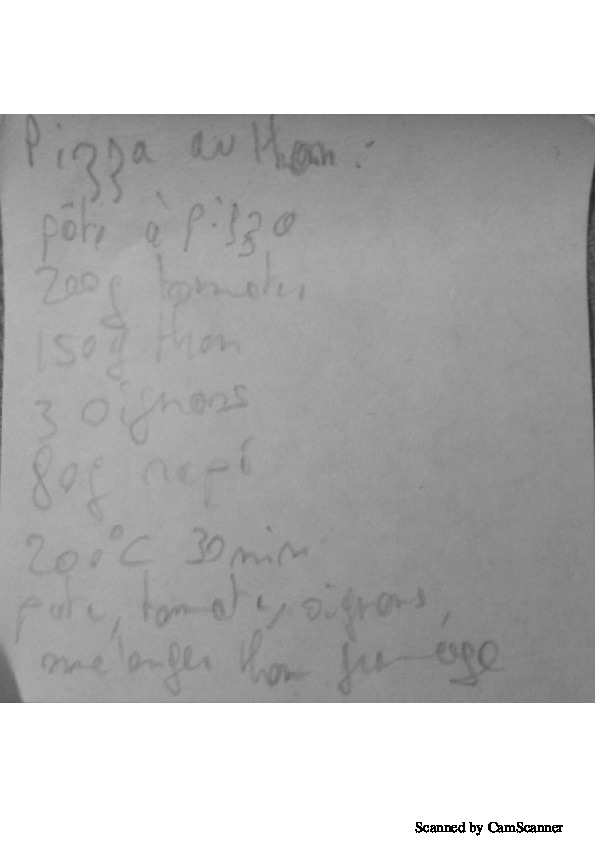 Pizza au thon :
pâte à pizza
200g tomates
150g thon
3 oignons
80g rapé
200°C 30min
pate, tomate, oignons,
mélanger thon fromage
Scanned by CamScanner